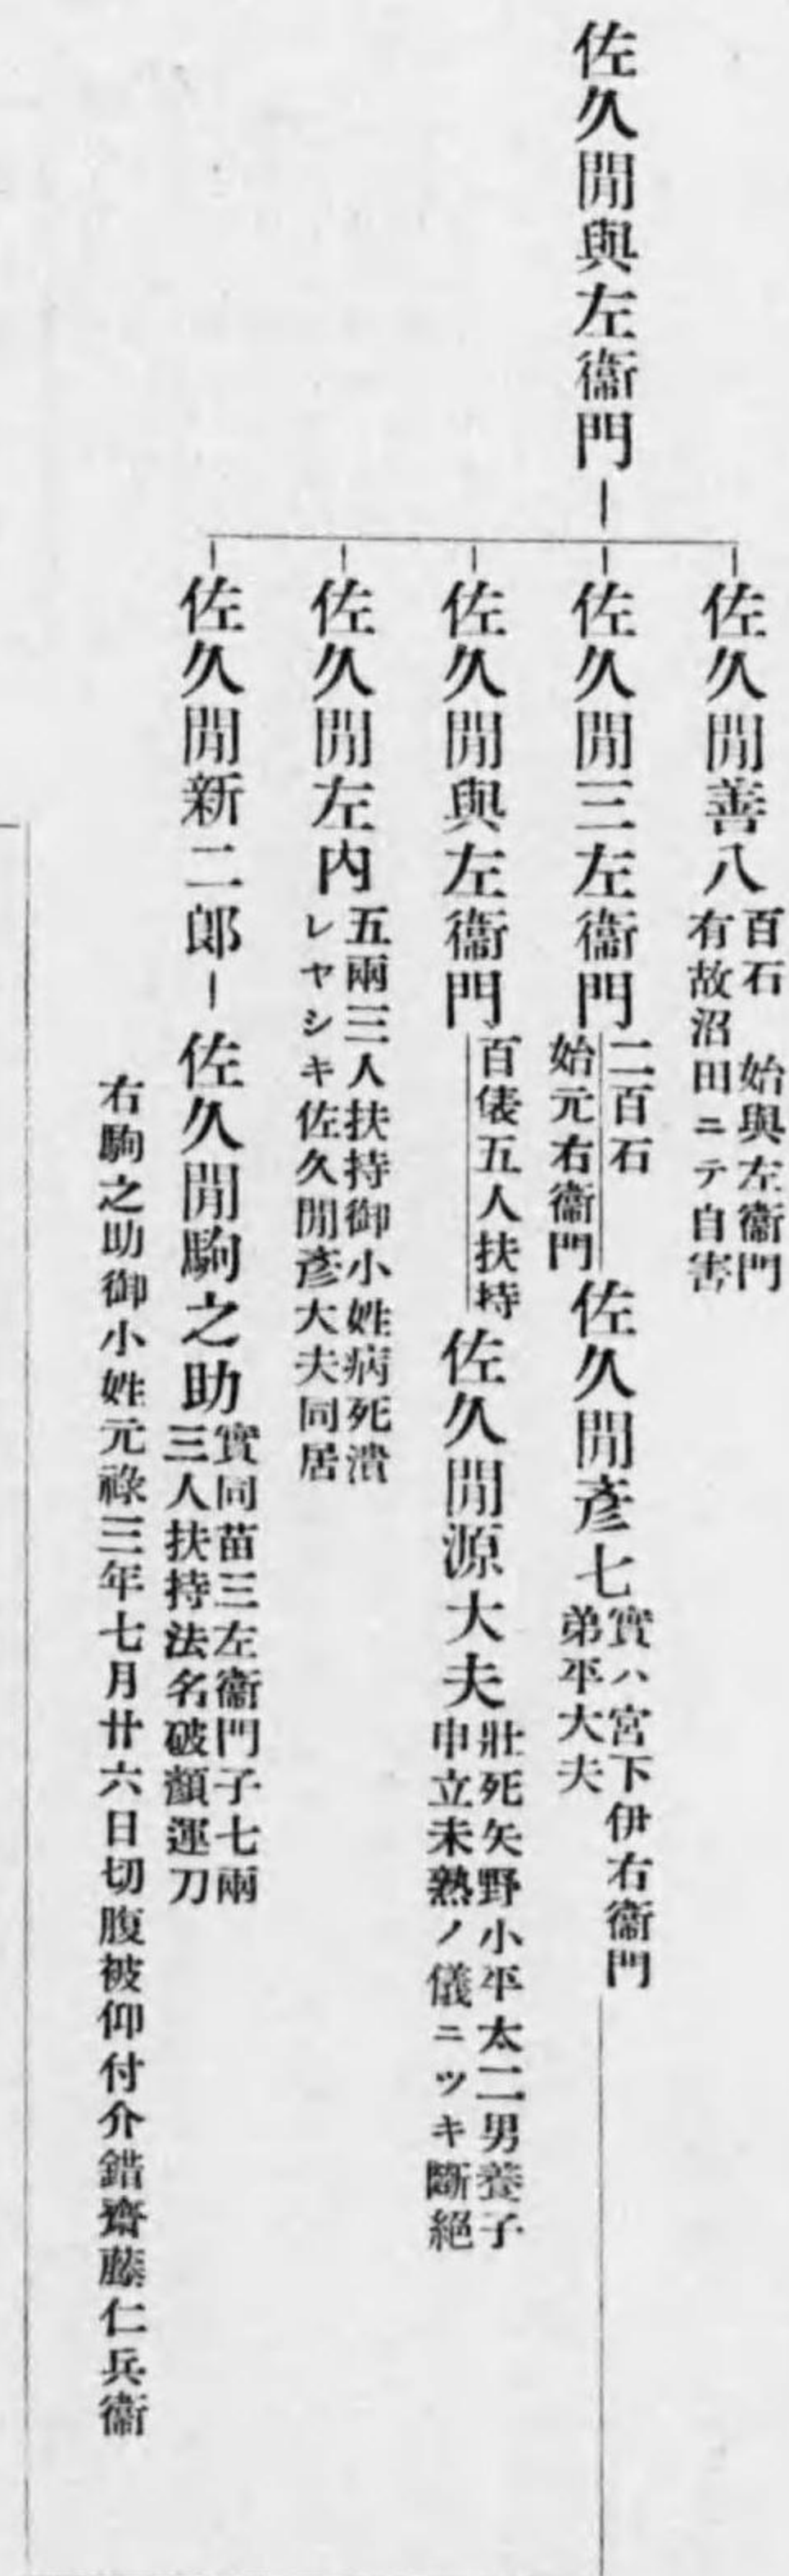 佐久間與左衞門
佐久間善八
百石　始與左衞門
有故沼田ニテ自害
佐久間三左衞門
二百石
始元右衞門
佐久間彥七
實ハ宮下伊右衞門
弟平大夫
佐久間與左衞門
百俵五人扶持
佐久間源大夫
壯死矢野小平太二男養子
申立未熟ノ儀ニツキ斷絕
佐久間左內
五兩三人扶持御小姓病死潰
レヤシキ佐久間彥大夫同居
佐久間新二郞
佐久間駒之助
實同苗三左衞門子七兩
三人扶持法名破顏運刀
右駒之助御小姓元祿三年七月廿六日切腹被仰付介錯齋藤仁兵衞